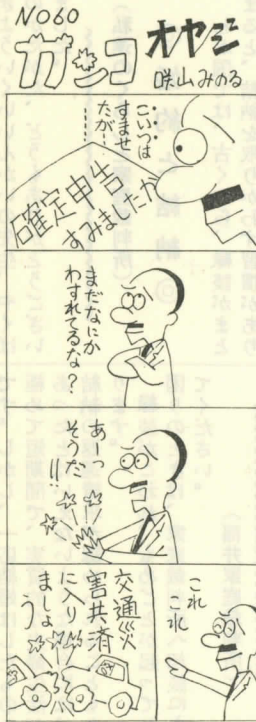 NO60
ガンコオヤジ
咲山みのる
こいつは
すませ
たが……
確定申告
すみましたか
まだなにか
わすれてるな?
あーっ
そうだ
!!
これ
これ
交通災
害共済
に入り
ましょ
う